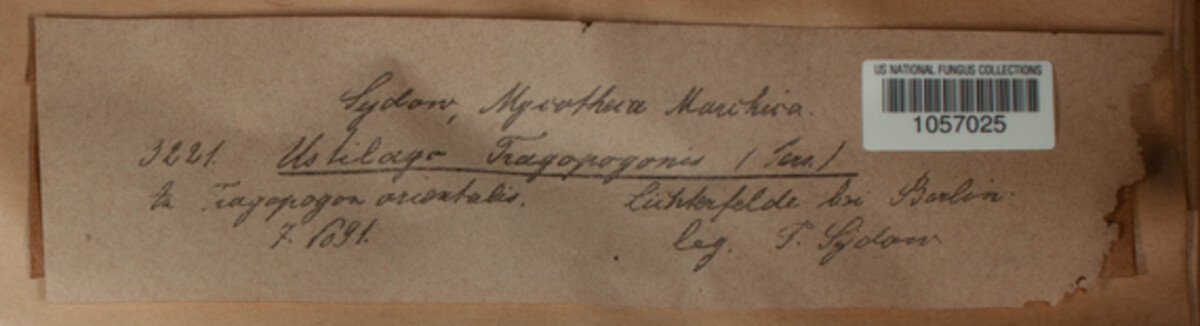 Sydow, Mycotheca Marchica.
US NATIONAL FUNGUS COLLECTIONS
1057025
3221. Ustilago Tragopogonis (Pers.)
In Tragopogon orientalis. Lichterfelde bei Berlin.
7. 1891. leg. P. Sydow